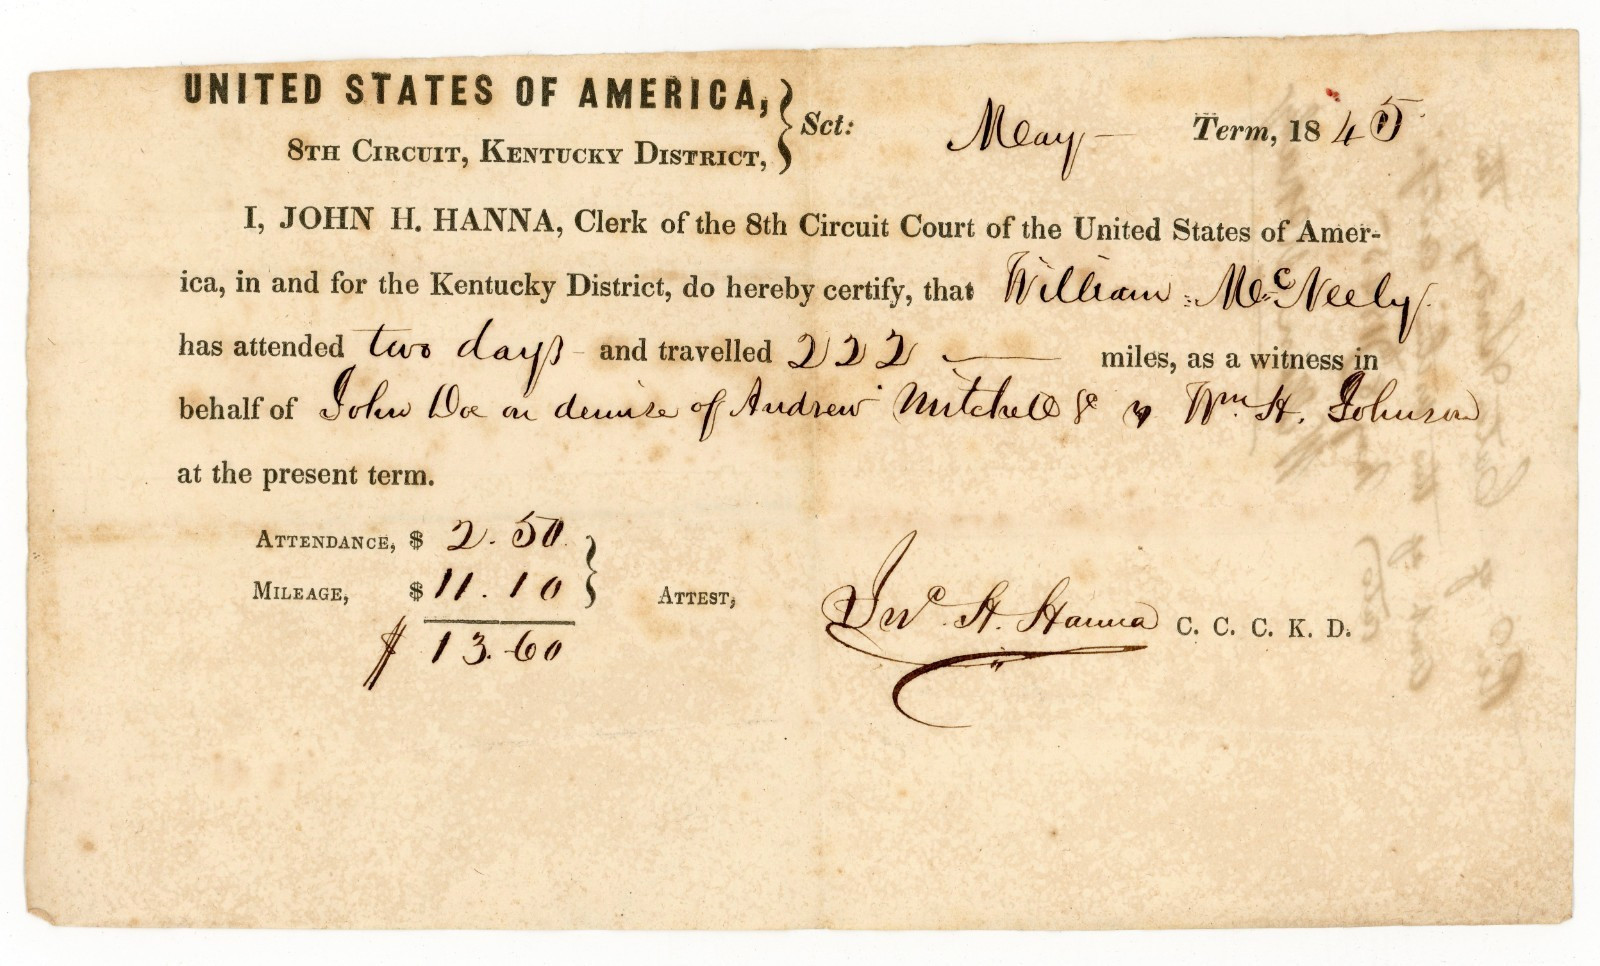 UNITED STATES OF AMERICA,
8TH CIRCUIT, KENTUCKY DISTRICT,
Sct: May Term, 1845
I, JOHN H. HANNA, Clerk of the 8th Circuit Court of the United States of Amer-
ica, in and for the Kentucky District, do hereby certify, that William McNeely
has attended two days and travelled 222 — miles, as a witness in
behalf of John Doe on demise of Andrew Mitchell &c v Wm. H. Johnson
at the present term.
ATTENDANCE, $ 2.50
MILEAGE, $ 11.10
$ 13.60
ATTEST, Jno. H. Hanna C. C. C. K. D.